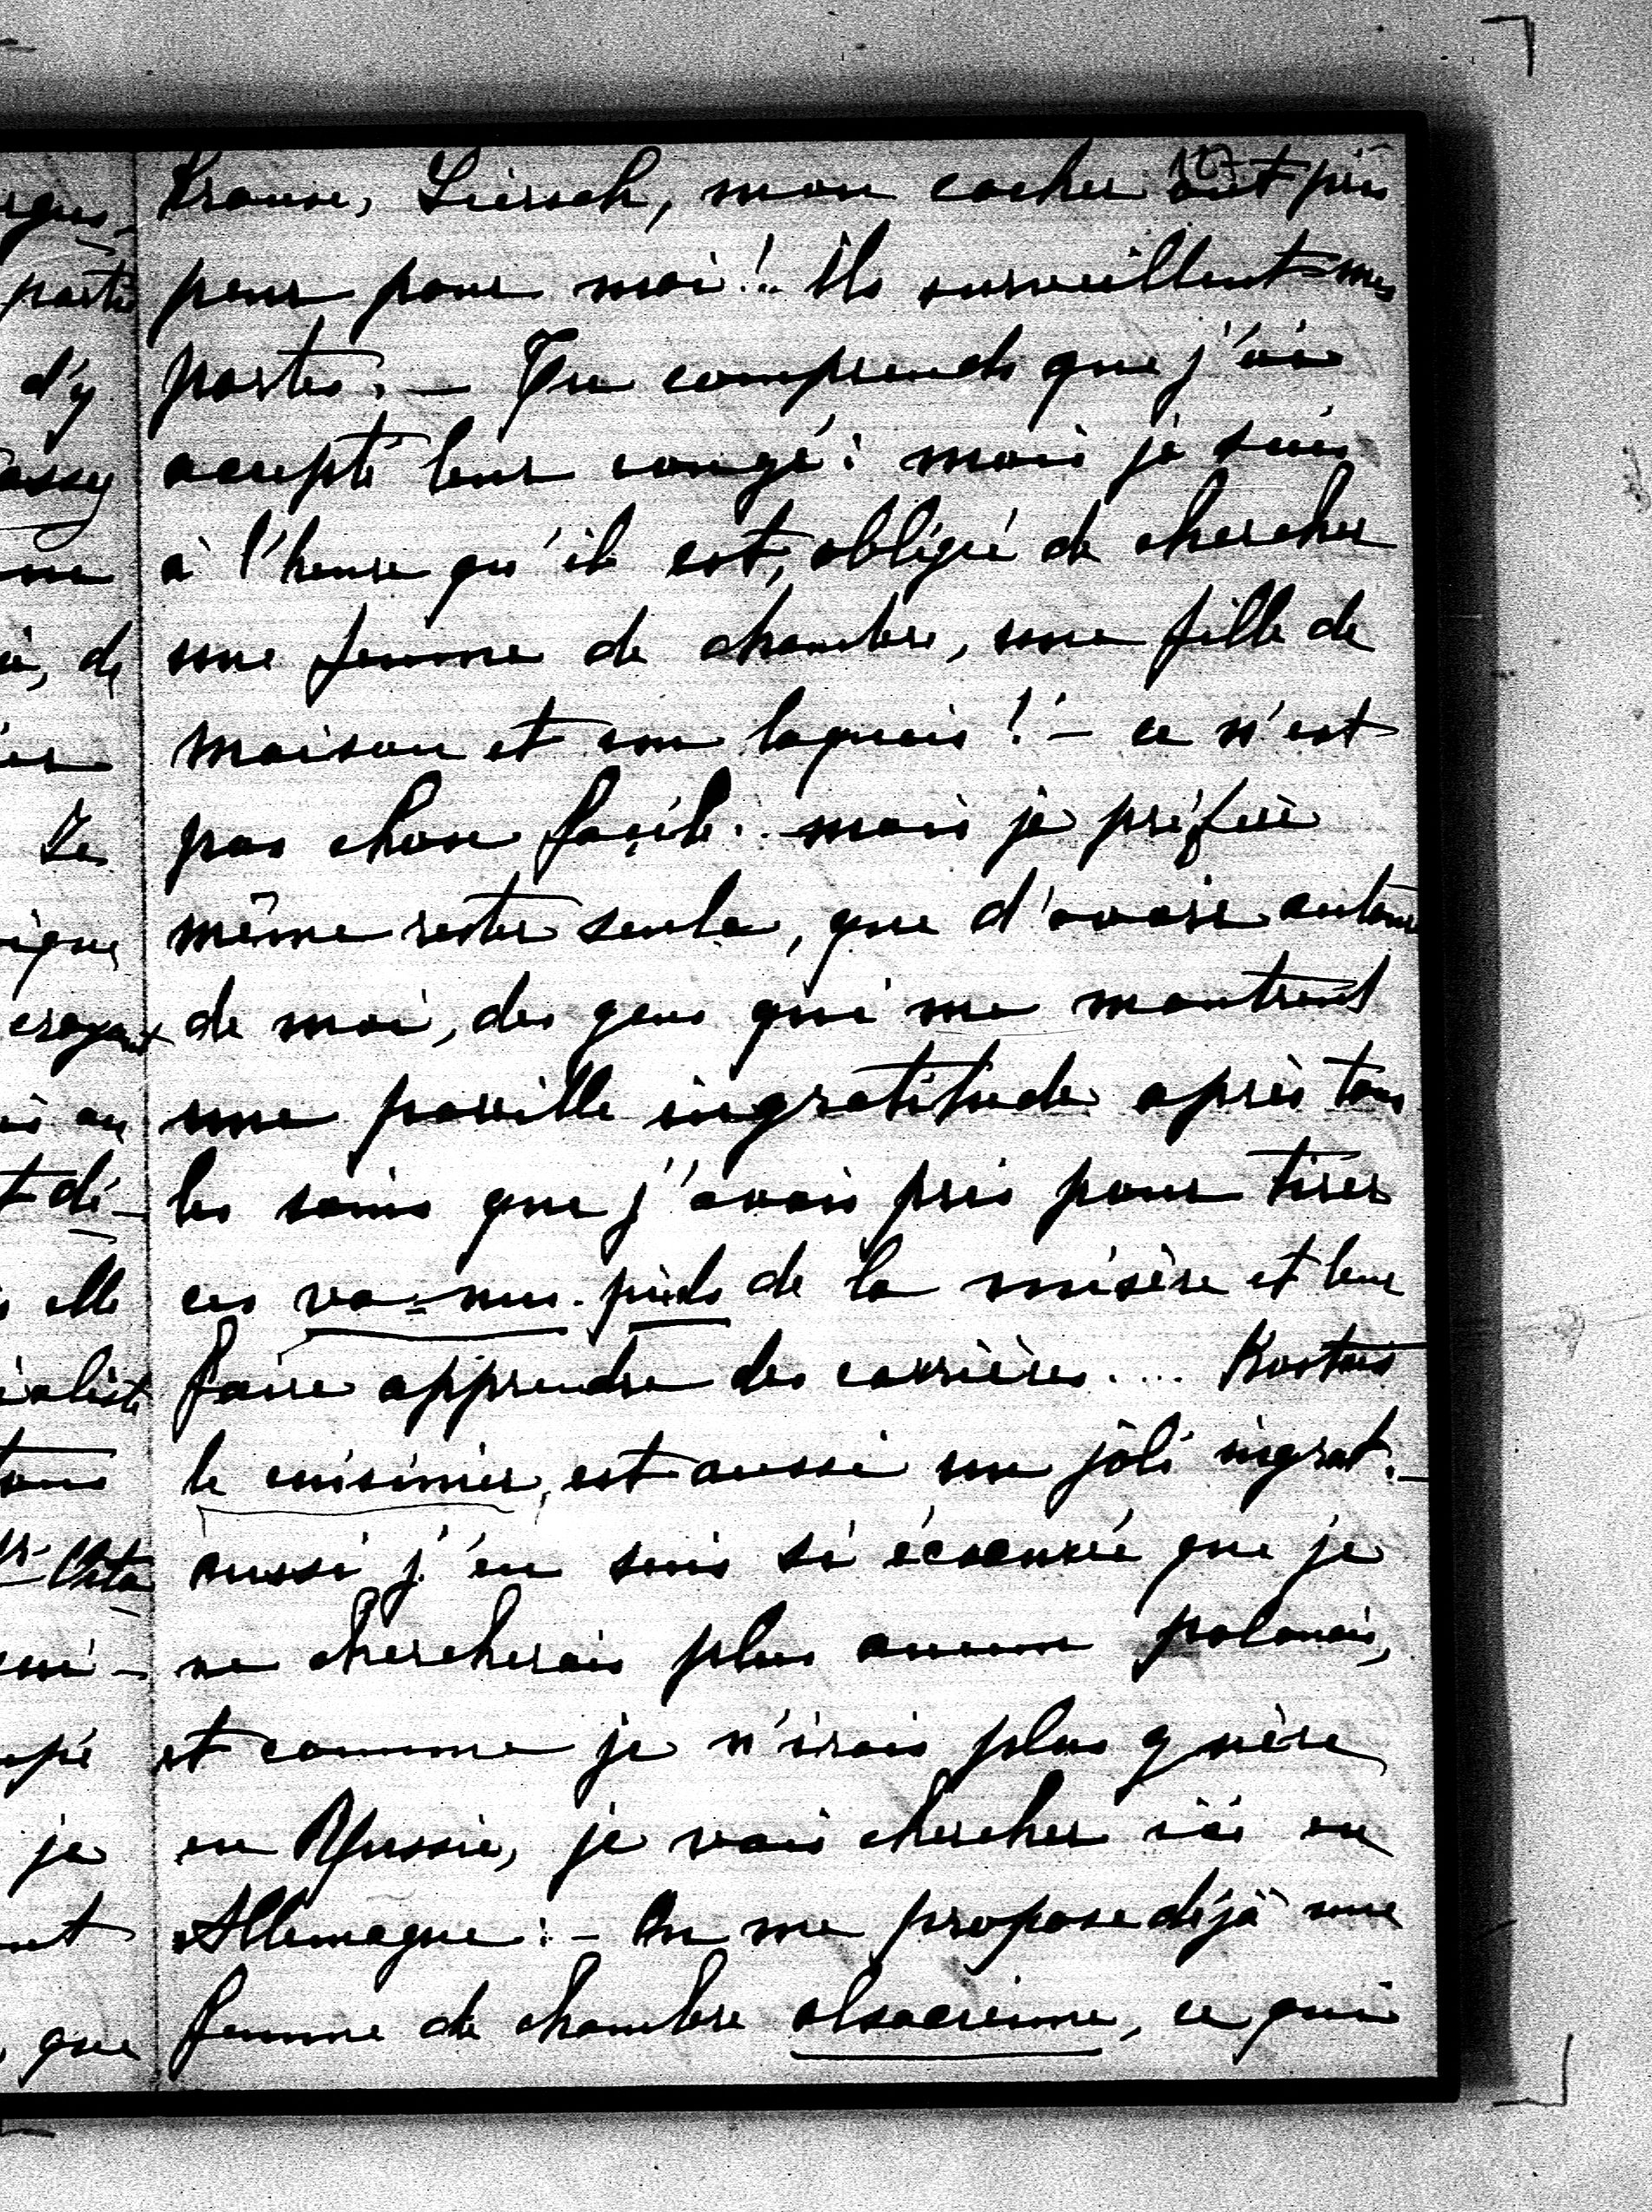 Krause, Liersch, mon cocher ont pris
peur pour moi!.. Ils surveillent mes
portes. — Tu comprends que j'ai
accepté leur congé: mais je suis
à l'heure qu'il est, obligée de chercher
une femme de chambre, une fille de
maison et un laquais! — ce n'est
pas chose facile.. mais je préfère
même rester seule, que d'avoir autour
de moi, des gens qui me montrent
une pareille ingratitude après tous
les soins que j'avais pris pour tirer
ces va-nus-pieds de la misère et leur
faire apprendre des carrières.... 
le cuisinier, est aussi un joli ingrat. —
aussi j'en suis si écoeurée que je
ne chercherais plus aucun polonais,
et comme je n'irais plus guère
en Russie, je vais chercher ici en
Allemagne: — On me propose déjà une
femme de chambre alsacienne, ce qui